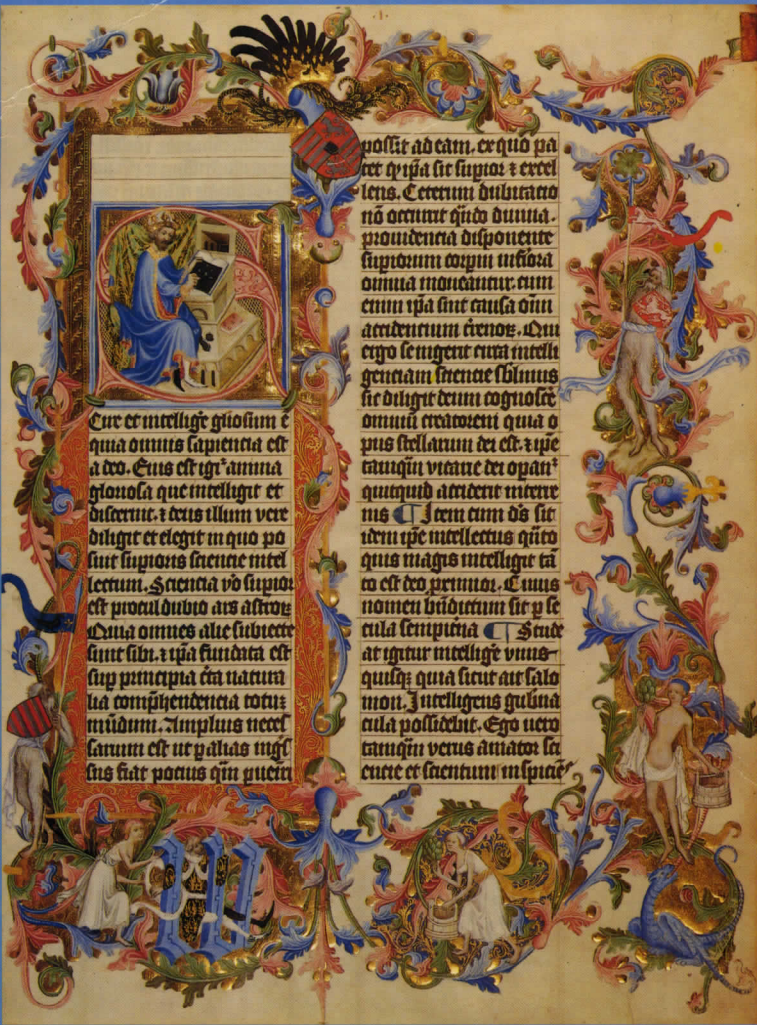 Cire et intellige gliosum ē
quia omnis sapiencia est
a deo. Eius est igr̄ anima
gloriosa que intelligit et
discernit. ⁊ deus illum vere
diligit et elegit in quo po
suit supioris sciencie intel
lectum. Sciencia v̄o supior
est procul dubio ars astroꝝ
Quia omnes alie subiecte
sunt sibi. ⁊ ip̄a fundata est
sup principia c̄ta natura
lia comp̄hendencia totuꝫ
mūdum. Amplius neces
sarium est ut p alias
fiat pocius qm̄
possit ad eam. ex quo pa
tet ꝙ ip̄a sit supior ⁊ excel
lens. Ceterum dubitacio
nō occurrit qn̄do diuina.
prouidencia disponente
supiorum corpm̄ inf̄iora
omnia moueantur. cum
enim ip̄a sint causa om̄i
accidencium
ergo se ingerit cura intelli
genciam sciencie sblimius
sic diligit deum cognoscē
omniū creatorem quia o
pus stellarum dei est. ⁊ ip̄e
tanqm̄ vicarie dei opanr̄
quitquid acciderit in terre
nis ¶ Item cum ds̄ sit
idem ip̄e intellectus qn̄to
quis magis intelligit tā
to est deo primior. Cuius
nomen bn̄dictum sit p se
cula sempit̄na ¶ Stude
at igitur intelliḡe vnus
quisqꝫ quia sicut ait salo
mon. Intelligens gub̄na
cula possidebit. Ego vero
tanqm̄ verus amator sci
encie et scientum inspicie